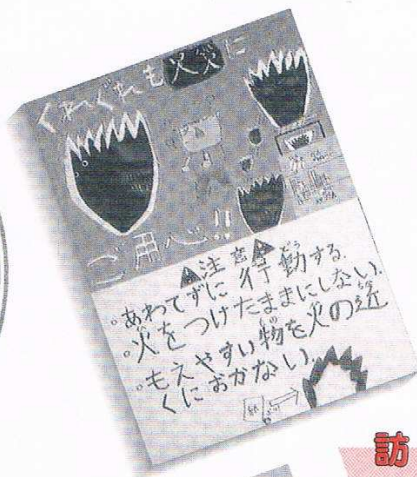 くれぐれも火災に
ご用心!!
注意
・あわてずに行動する。
・火をつけたままにしない。
・もえやすい物を火の近
くにおかない。
紙
訪